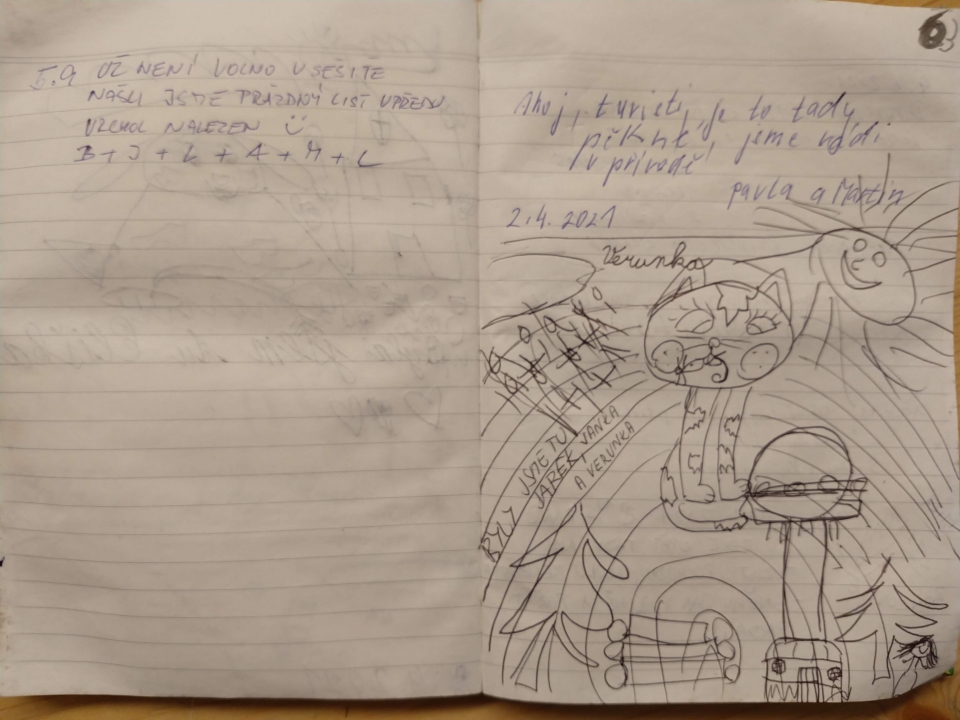 5.9 UŽ NENÍ VOLNO V SEŠITĚ
NAŠLI JSME PRÁZDNÝ LIST VPŘEDU
VRCHOL NALEZEN
B + J + L + A + M + L
63
Ahoj, turisti, je to tady
pěkné, jsme rádi
v přírodě
Pavla a Martin
2.4. 2021
Verunka
BYLY JSME TU
JAREK, JANKA
A VERUNKA